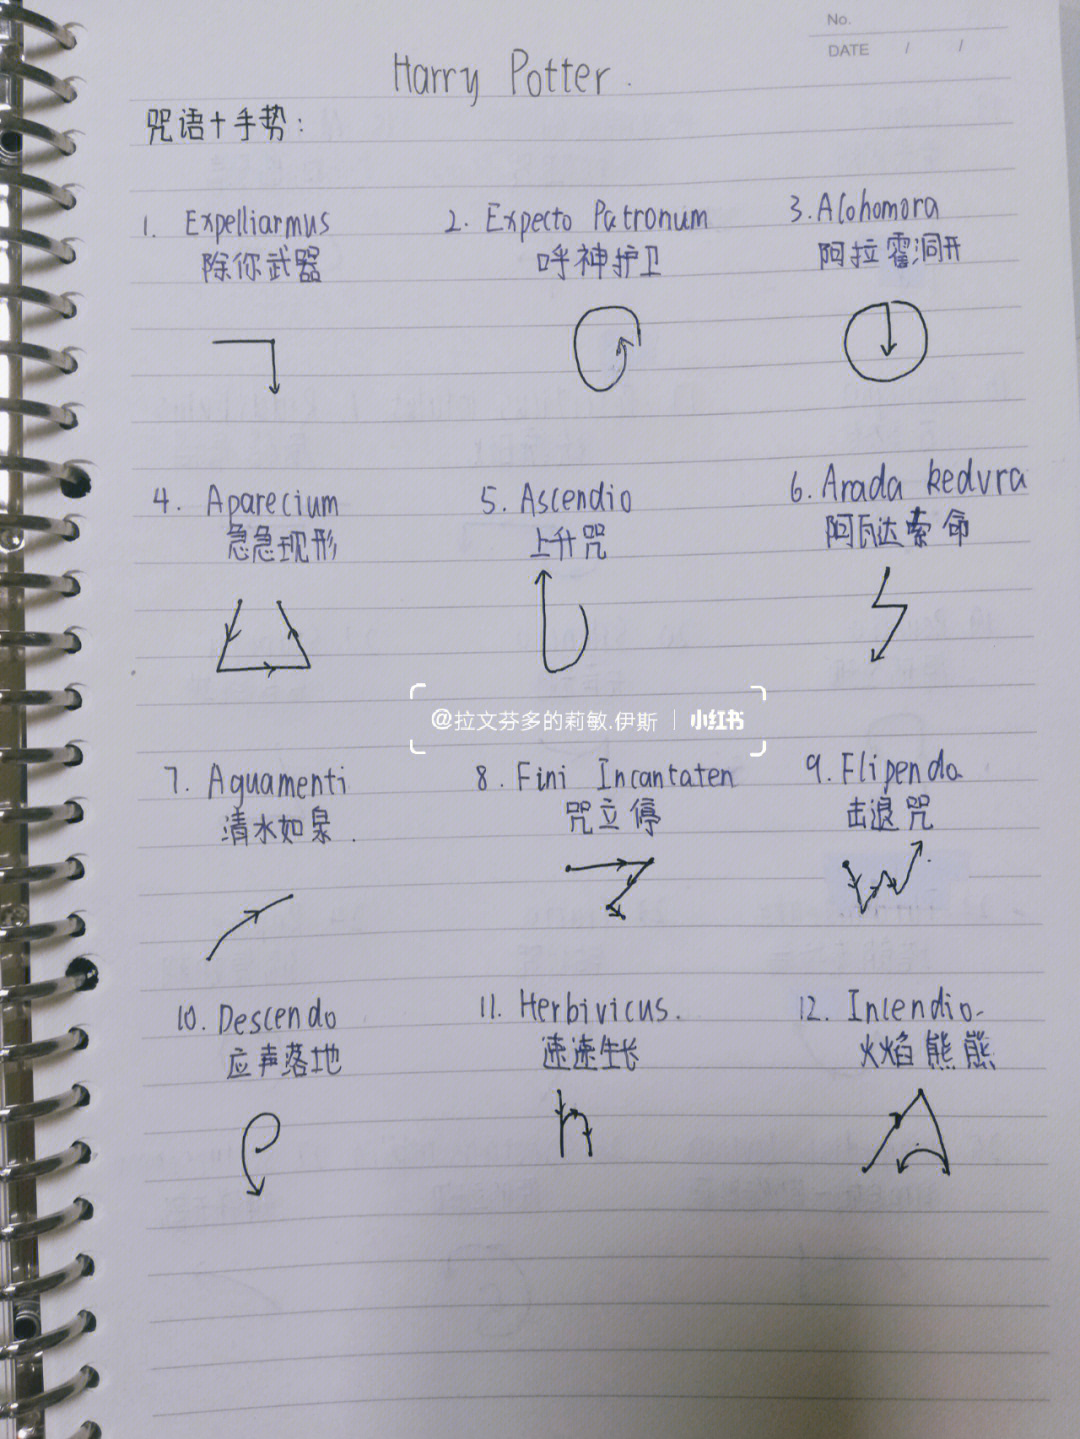 No.
DATE / /
Harry Potter.
咒语+手势:
1. Expelliarmus
除你武器
2. Expecto Patronum
呼神护卫
3. Alohomora
阿拉霍洞开
4. Aparecium
急急现形
5. Ascendio
上升咒
6. Arada kedvra
阿瓦达索命
7. Aguamenti
清水如泉.
8. Fini Incantaten
咒立停
9. Flipendo
击退咒
10. Descendo
应声落地
11. Herbivicus.
速速生长
12. Incendio
火焰熊熊
@拉文芬多的莉敏.伊斯 | 小红书